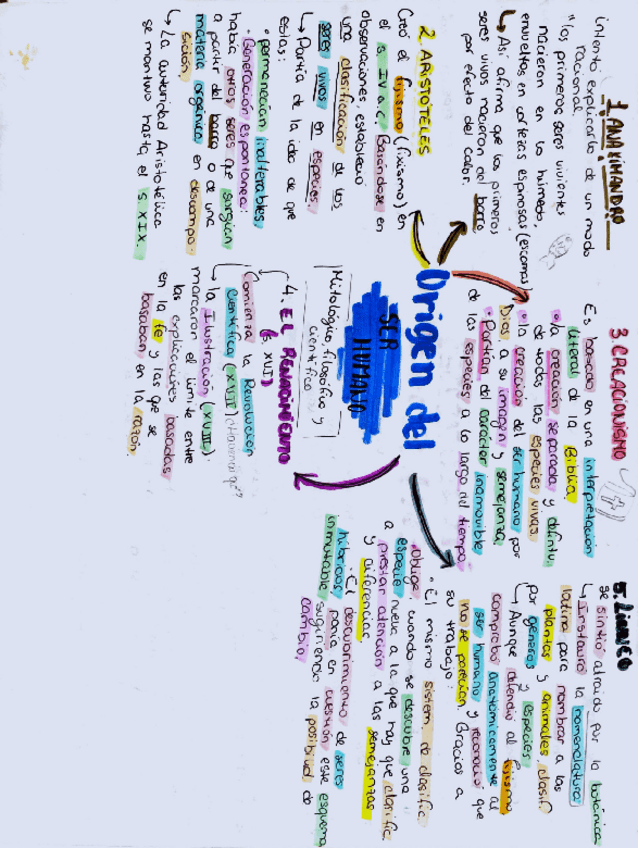 1. ANAXIMANDRO
intentó explicarlo de un modo
racional.
"los primeros seres vivientes
nacieron en lo húmedo,
envueltos en cortezas espinosas (escamas)
↳ Así, afirma que los primeros
seres vivos nacieron del barro
por efecto del calor.
2. ARISTÓTELES
Creó el fijismo (fixismo) en
el s. IV a.C. Basándose en
observaciones, estableció
una clasificación de los
seres vivos en especies.
↳ Partía de la idea de que
estas:
• permanecían inalterables
• Generación espontánea:
había otros seres que surgían
a partir del barro o de una
materia orgánica en descompo-
sición.
↳ La autoridad Aristotélica
se mantuvo hasta el s XIX.
Origen del
SER
HUMANO
Mitológico, filosófico y
científico
3. CREACIONISMO
Es basado en una interpretación
literal de la Biblia
• la creación separada y definitiv.
de todas las especies vivas.
• la creación del ser humano por
Dios a su imagen y semejanza
• Partían del carácter inamovible
de las especies a lo largo del tiempo.
4. EL RENACIMIENTO
(s. XVI)
Comienza la Revolución
Científica (XVII)
↳ la Ilustración (XVIII)
marcaron el límite entre
las explicaciones basadas
en la fe y las que se
basaban en la razón.
5. Linneo
se sintió atraído por la botánica
↳ Instauró la nomenclatura
latina para nombrar a las
plantas y animales, clasif.
por géneros y especies
↳ Aunque defendió el fijismo
comprobó anatómicamente al
ser humano y reconoció que
no se parecían. Gracias a
su trabajo:
• El mismo sistem. de clasific.
obliga, cuando se descubre una
especie nueva a la que hay que clasific.
a prestar atención a las semejanzas
y diferencias.
• El descubrimiento de seres
híbridos, ponía en cuestión este esquema
inmutable sugiriendo la posibilid de
cambio.